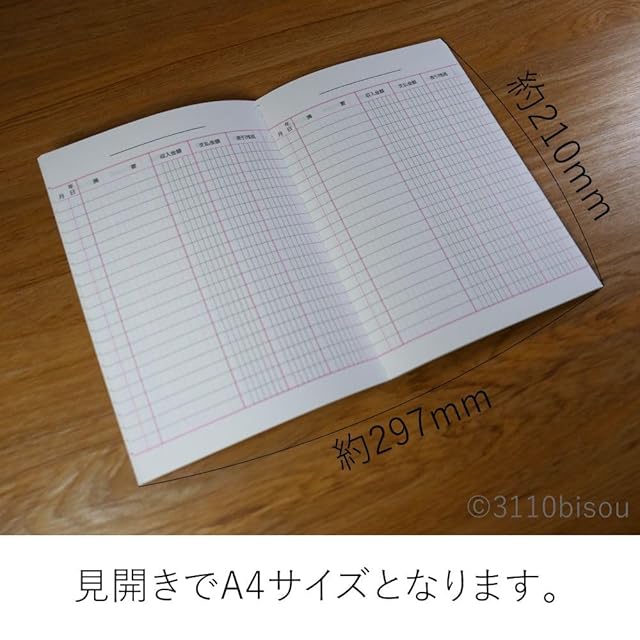 年
月 日
摘 要
収入金額
支払金額
差引残高
年
月 日
摘 要
収入金額
支払金額
差引残高
約210mm
約297mm
©3110bisou
見開きでA4サイズとなります。